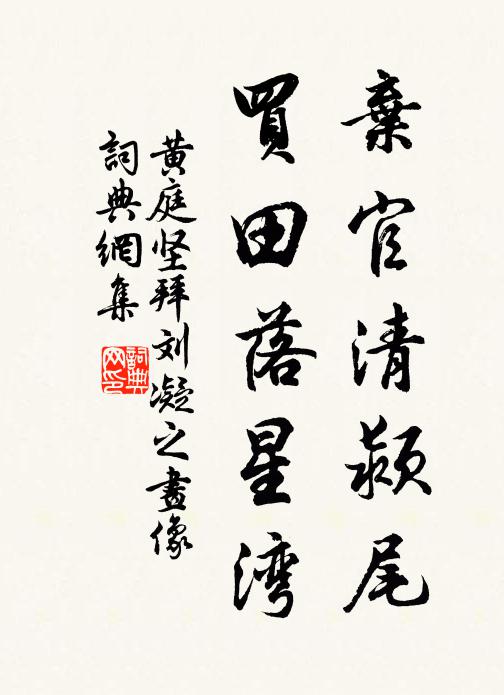 棄官清颍尾
買田落星湾
黄庭坚拜刘凝之畫像
詞典網集
詞典网印